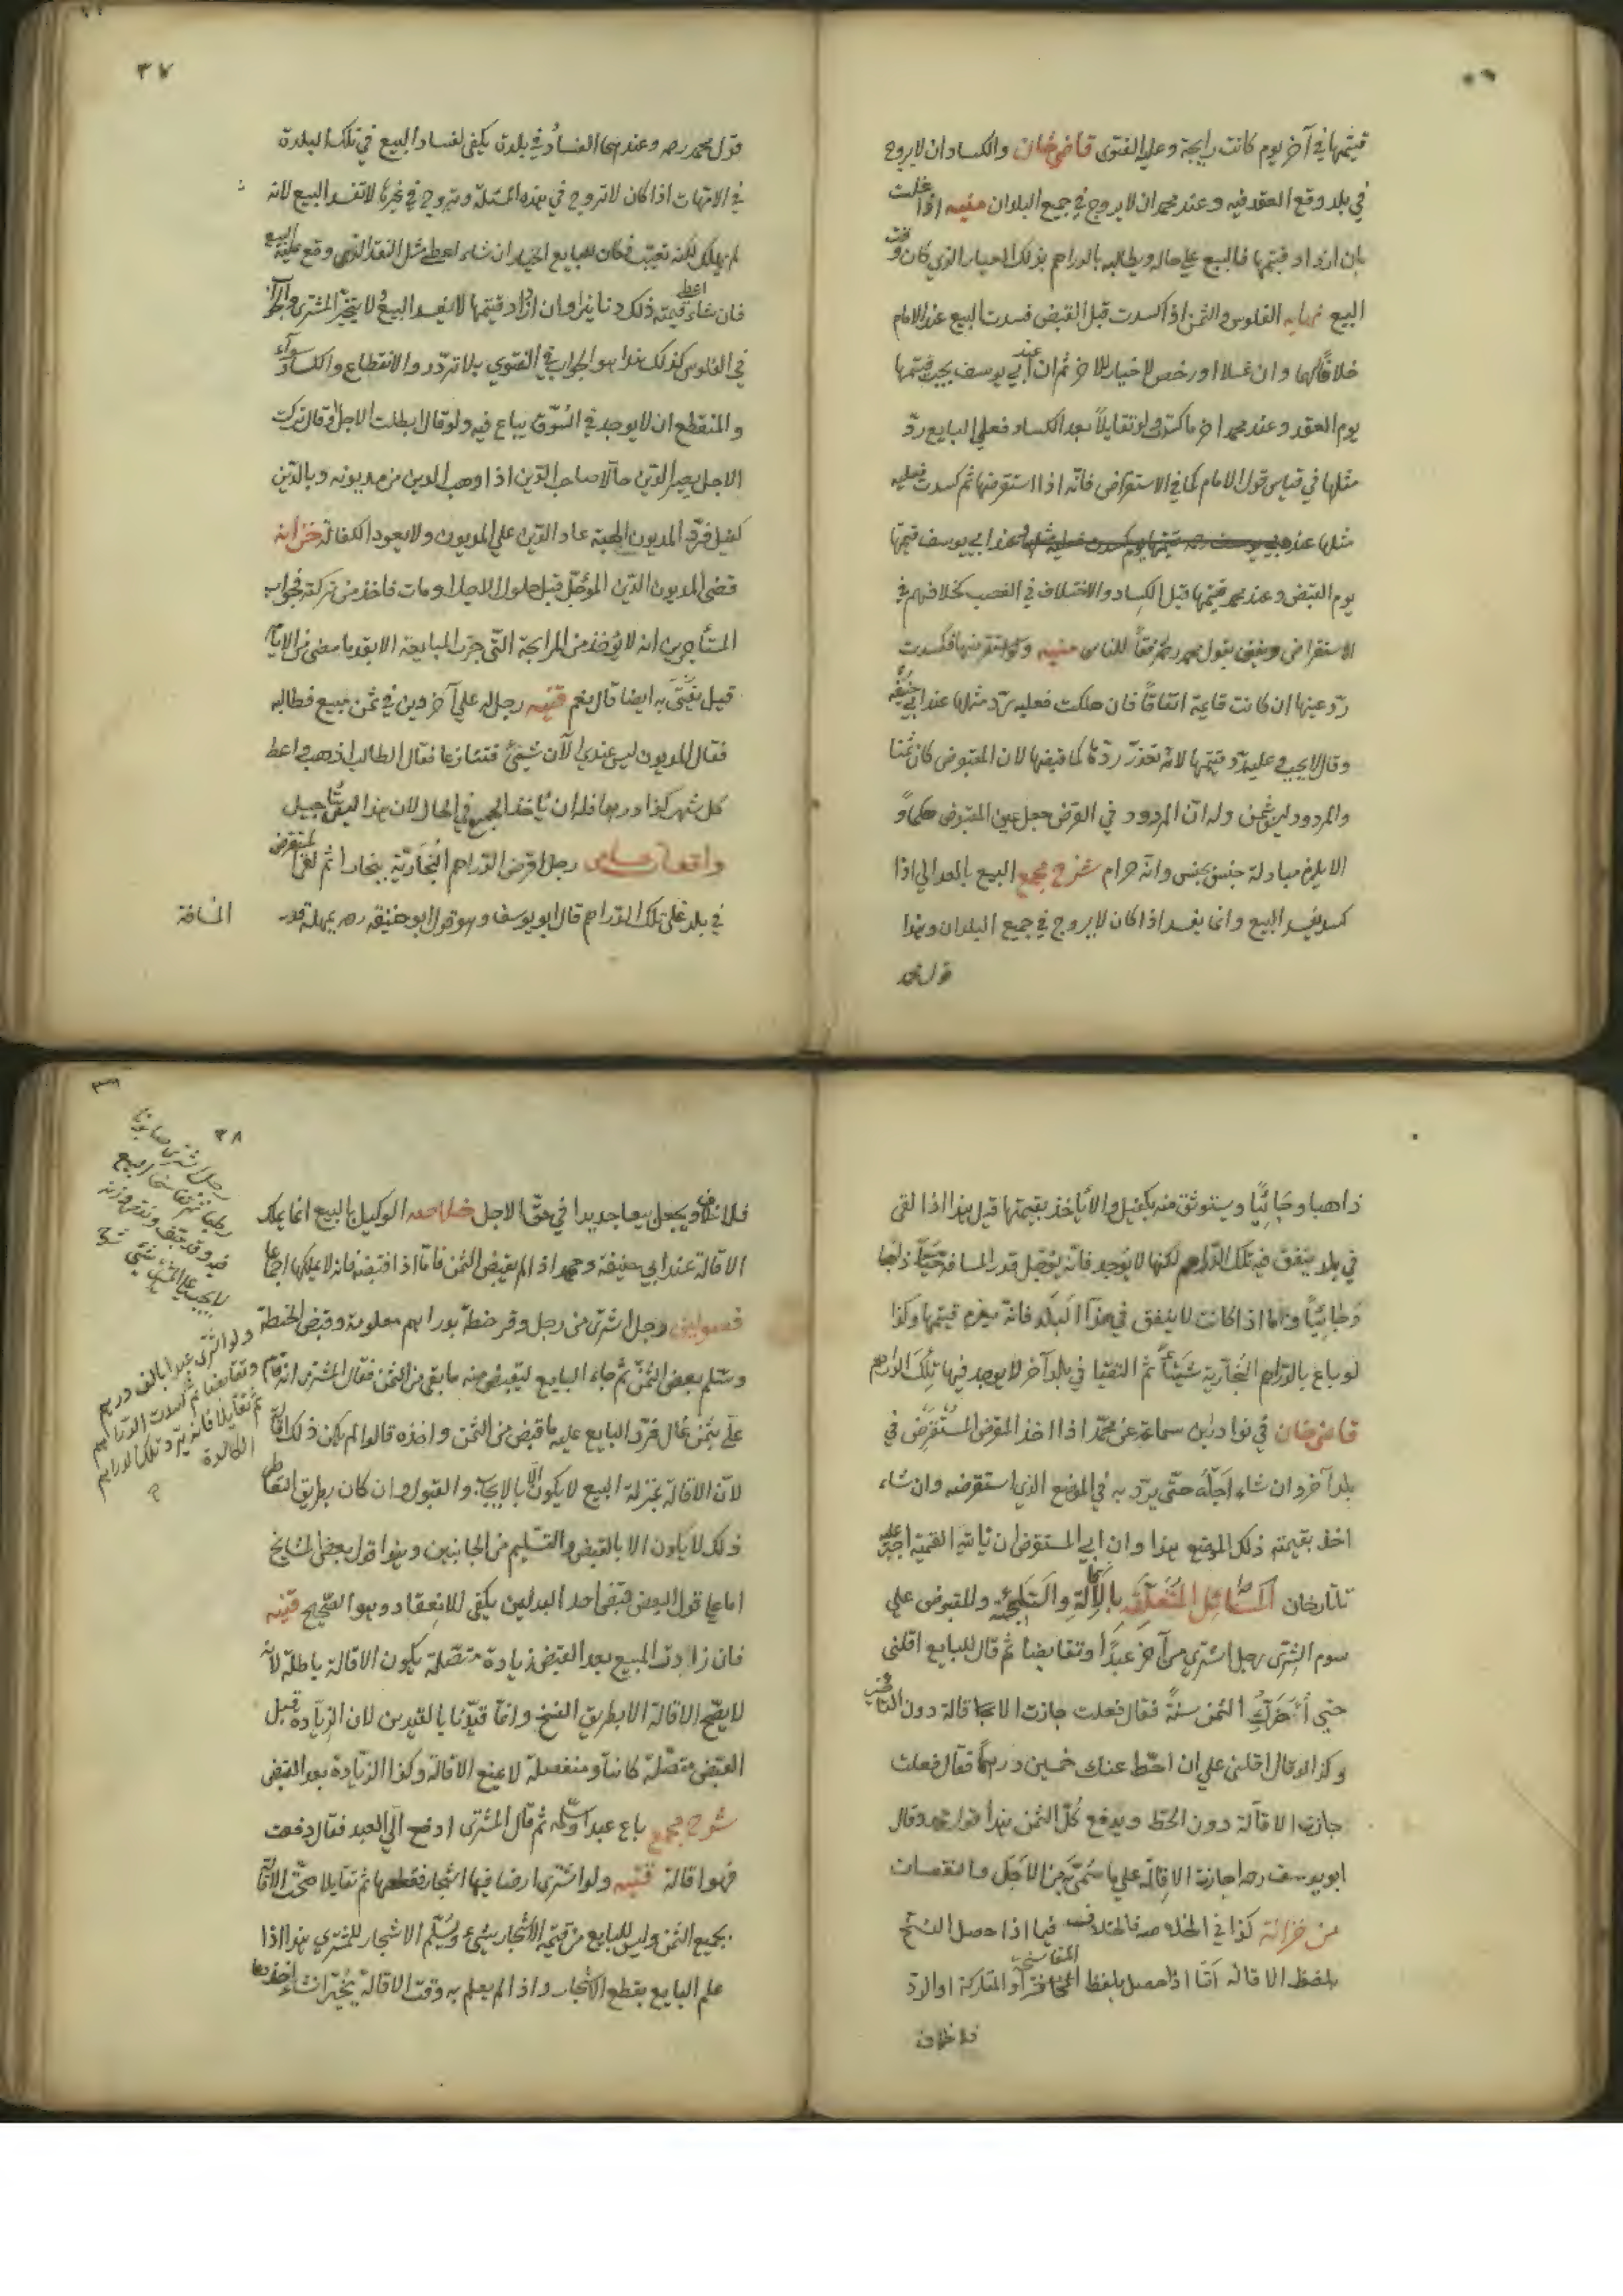 قيمتها في آخر يوم كانت رايجة وعليه الفتوى قاضي خان والكساد ان لا يروج
في بلد وقع العقد فيه وعند محمد ان لا يروج في جميع البلدان منيه اذا غلت
بان ازداد قيمتها فالبيع على حاله ويطالبه بالدراهم بذلك العيار الذي كان وقت
البيع نهايه الفلوس والثمن اذا كسدت قبل القبض فسدت البيع عند الامام
خلافا لهما وان غلا او رخص لا خيار للاخر ثم ان عند ابي يوسف يجب قيمتها
يوم العقد وعند محمد اخر ما كسدت ولو تقايلا بعد الكساد فعلى البايع ردّ
مثلها في قياس قول الامام كما في الاستقراض فانّه اذا استقرضها ثم كسدت فعليه
مثلها عند ابي يوسف قيمتها
يوم القبض وعند محمد قيمتها قبل الكساد والاختلاف في الغصب كخلافهم في
الاستقراض ويفتى بقول محمد رفقاً للناس منيه ولو استقرضها فكسدت
ردّ عينها ان كانت قايمة اتفاقاً فان هلكت فعليه ردّ مثلها عند ابي حنيفه
وقالا يجب عليه ردّ قيمتها لانه تعذّر ردّها كما قبضها لان المقبوض كان ثمنا
والمردود ليس بثمن وله انّ المردود في القرض جعل عين المقبوض حكماً و
الا يلزم مبادلة جنس بجنس وانّه حرام شرح مجمع البيع بالعدالي اذا
كسد يفسد البيع وانما يفسد اذا كان لا يروج في جميع البلدان وهذا
قول محمد
٣٧
قول محمد رحمه وعندهما الفساد في بلدة يكفي لفساد البيع في تلك البلدة
في الامهات اذا كان لا تروج في هذه المسئلة وتروج في غيرها لا تفسد البيع لانه
لم يهلك لكنه تعيب فكان للبايع الخيار ان شاء اعطى مثل النقد الذي وقع عليه البيع
فان شاء اعطى قيمته ذلك دنانير وان ازداد قيمتها لا يفسد البيع ولا يتخيّر المشتري
في الفلوس كذلك هذا هو الجواب في الفتوى بلا تردّد والانقطاع والكساد سواء
والمنقطع ان لا يوجد في السّوق يباع فيه ولو قال ابطلت الاجل او قال تركت
الاجل يصير الدّين حالّا صاحب الدّين اذا وهب الدين من مديونه وبالدّين
كفيل فردّ المديون الهبة عاد الدّين على المديون ولا يعود الكفالة خزانه
قضى المديون الدّين المؤجّل قبل حلول الاجل او مات فاخذ من تركته فجواب
المتأخرين انه لا يؤخذ من المرابحة التي جرت المبايعة الا بقدر ما مضى من الايام
قيل يفتى به ايضا قال نعم قنيه رجل له على آخر دين في ثمن مبيع فطالبه
فقال المديون ليس عندي الآن شيئ فتنازعا فقال الطالب اذهب واعط
كل شهر كذا درهما فله ان ياخذ الجميع في الحال لان هذا ليس بتأجيل
واقعات حسامي رجل اقرض الدّراهم البُخاريّة ببخارا ثم لقى المستقرض
في بلد على تلك الدّراهم قال ابو يوسف وهو قول ابو حنيفه رحمه يمهله قدر
المسافة
ذاهبا وجائيًا ويستوثق منه بكفيل والّا ياخذ بقيمتها قيل هذا اذا لقى
في بلد ينفق فيه تلك الدّراهم لكنها لا يوجد فانّه يؤجّل قدر المسافة ذاهبا
وجائيًا وامّا اذا كانت لا ينفق في هذا البلد فانّه يغرم قيمتها وكذا
لو باع بالدّراهم البُخاريّة شيئاً ثم التقيا في بلد آخر لا يوجد فيها تلك الدّراهم
قاضي خان في نوادر ابن سماعة عن محمّد اذا اخذ المقرض المستقرض في
بلد آخر وان شاء اجّله حتّى يردّ به في الموضع الذي استقرضه وان شاء
اخذ بقيمته ذلك الموضع هذا وان ابى المستقرض ان ياتيه القيمة اجبر عليه
تتارخان المسائل المتعلّقة بالاقالة والتلجئة والمقبوض على
سوم الشِرى رجل اشترى من آخر عبدًا وتقابضا ثم قال للبايع اقلني
حتى أؤخّر لك الثمن سنةً فقال فعلت جازت الاقالة دون التأخير
وكذا لو قال اقلني على ان احطّ عنك خمسين درهمًا فقال فعلت
جازت الاقالة دون الحطّ ويدفع كُلّ الثمن هذا قول محمد وقال
ابو يوسف رحمه جازت الاقالة على ما سُمّي من الاجل والنقصان
من خزانة كذا في الخلاصه فالخلاف فيما اذا حصل الفسخ
بلفظ الاقالة امّا اذا حصل بلفظ المفاسخة او المتاركة او الردّ
فلا خلاف
٣٨
فلا خلاف ويجعل بيعا جديدا في حقّ الاجل خلاصه الوكيل بالبيع انما يملك
الاقالة عند ابي حنيفة ومحمد اذا لم يقبض الثمن فامّا اذا قبضه فانه لا يملكها اجماعا
فصولين رجل اشترى من رجل وقر حنطة بدراهم معلومة وقبض الحنطة
وسلّم بعض الثمن ثم جاء البايع ليقبض منه ما بقي من الثمن فقال المشتري انه قام
عليّ بثمن غال فردّ البايع عليه ما قبض من الثمن واخذه قالوا لم يكن ذلك اقالة
لانّ الاقالة بمنزلة البيع لا يكون الّا بالايجاب والقبول وان كان بطريق التعاطي
ذلك لا يكون الا بالقبض والتسليم من الجانبين وهذا قول بعض المشايخ
اما على قول البعض فقبض احد البدلين يكفي للانعقاد وهو الصّحيح قنيه
فان زادت المبيع بعد القبض زيادة متصّلة يكون الاقالة باطلة لانّه
لا يصحّ الاقالة الا بطريق الفسخ وانّما قيّدنا بالقيدين لان الزّيادة قبل
القبض متصّلة كانت او منفصلة لا يمنع الاقالة وكذا الزّيادة بعد القبض
شرح مجمع باع عبدا وسلّمه ثم قال المشتري ادفع الّي العبد فقال دفعت
فهو اقالة قنيه ولو اشترى ارضا فيها اشجار فقطعها ثم تقايلا صحّت الاقالة
بجميع الثمن وليس للبايع من قيمة الاشجار شيئ ويُسَلّم الاشجار للمشتري هذا اذا
علم البايع بقطع الاشجار واذا لم يعلم به وقت الاقالة يخيّر ان شاء اخذها
رجل اشترى صابونا
رطبا ثم تفاسخا البيع
فيه وقد جفّ ونقص وزنه
لا يجب على المشتري شئ
ولو اشترى عبدا بالف درهم
وتقابضا ثم كسدت الدّراهم
ثم تقايلا فانه يردّ تلك الدراهم
الكاسدة